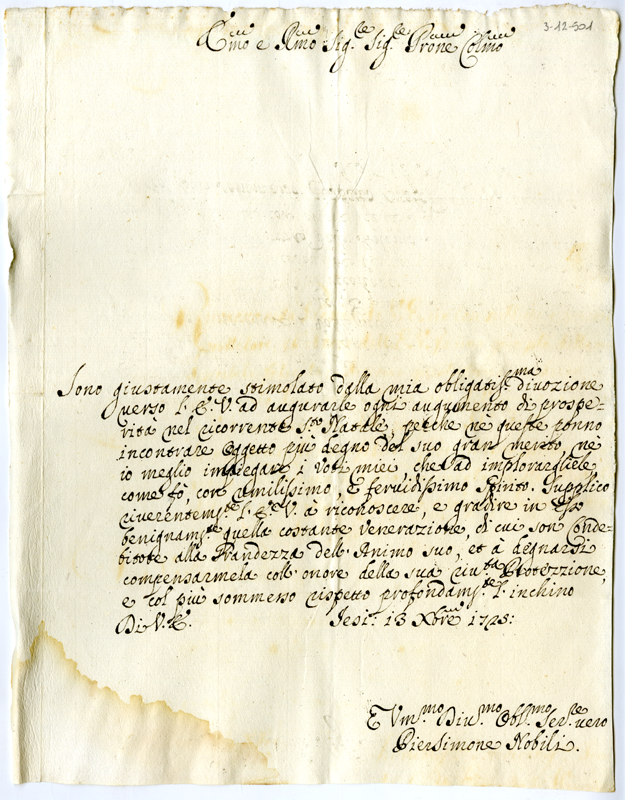 3-12-501
E.mo e R.mo Sig.re Sig.re P.rone Col.mo
Sono giustamente stimolato dalla mia obligatis.ma divozione
verso l'E.V. ad augurarle ogni augumento di prospe=
rità nel ricorrente S.to Natale, perche ne queste ponno
incontrare oggetto più degno del suo gran merito ne
io meglio impiegare i voti miei, che ad implorargliele
come fò, con umilissimo, e fervidissimo spirito. Supplico
riverentem.te l'E.V. à riconoscere, e gradire in essi
benignam.te quella costante venerazione, di cui son Conde=
bitore alla Grandezza dell'Animo suo, et à degnarsi
compensarmela coll'onore della sua riv.ta Protezzione,
e col più sommesso rispetto profondam.te l'inchino
Di V.E. Jesi: 13 Xbre 1723:
E Um.mo Div.mo Obl.mo Ser.re vero
Piersimone Nobili.